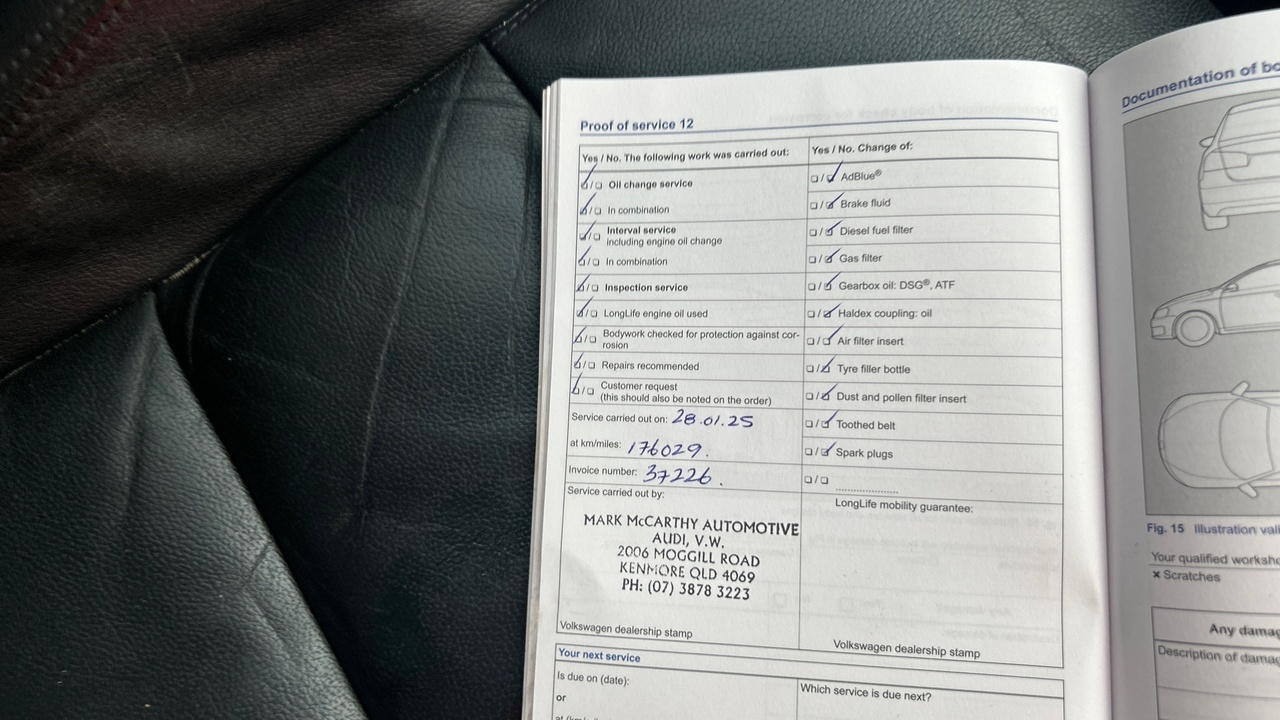 Proof of service 12
Yes / No. The following work was carried out:
☑/☐ Oil change service
☑/☐ In combination
☑/☐ Interval service
including engine oil change
☑/☐ In combination
☑/☐ Inspection service
☑/☐ LongLife engine oil used
☑/☐ Bodywork checked for protection against cor-
rosion
☑/☐ Repairs recommended
☑/☐ Customer request
(this should also be noted on the order)
Service carried out on: 28.01.25
at km/miles: 176029.
Invoice number: 37226.
Service carried out by:
MARK McCARTHY AUTOMOTIVE
AUDI, V.W.
2006 MOGGILL ROAD
KENMORE QLD 4069
PH: (07) 3878 3223
Volkswagen dealership stamp
Yes / No. Change of:
☐/☑ AdBlue®
☐/☑ Brake fluid
☐/☑ Diesel fuel filter
☐/☑ Gas filter
☐/☑ Gearbox oil: DSG®, ATF
☐/☑ Haldex coupling: oil
☐/☑ Air filter insert
☐/☑ Tyre filler bottle
☐/☑ Dust and pollen filter insert
☐/☑ Toothed belt
☐/☑ Spark plugs
☐/☐ ....................
LongLife mobility guarantee:
Volkswagen dealership stamp
Your next service
Is due on (date):
or
Which service is due next?
Documentation of
Fig. 15 Illustration
Your qualified
× Scratches
Any
Description of